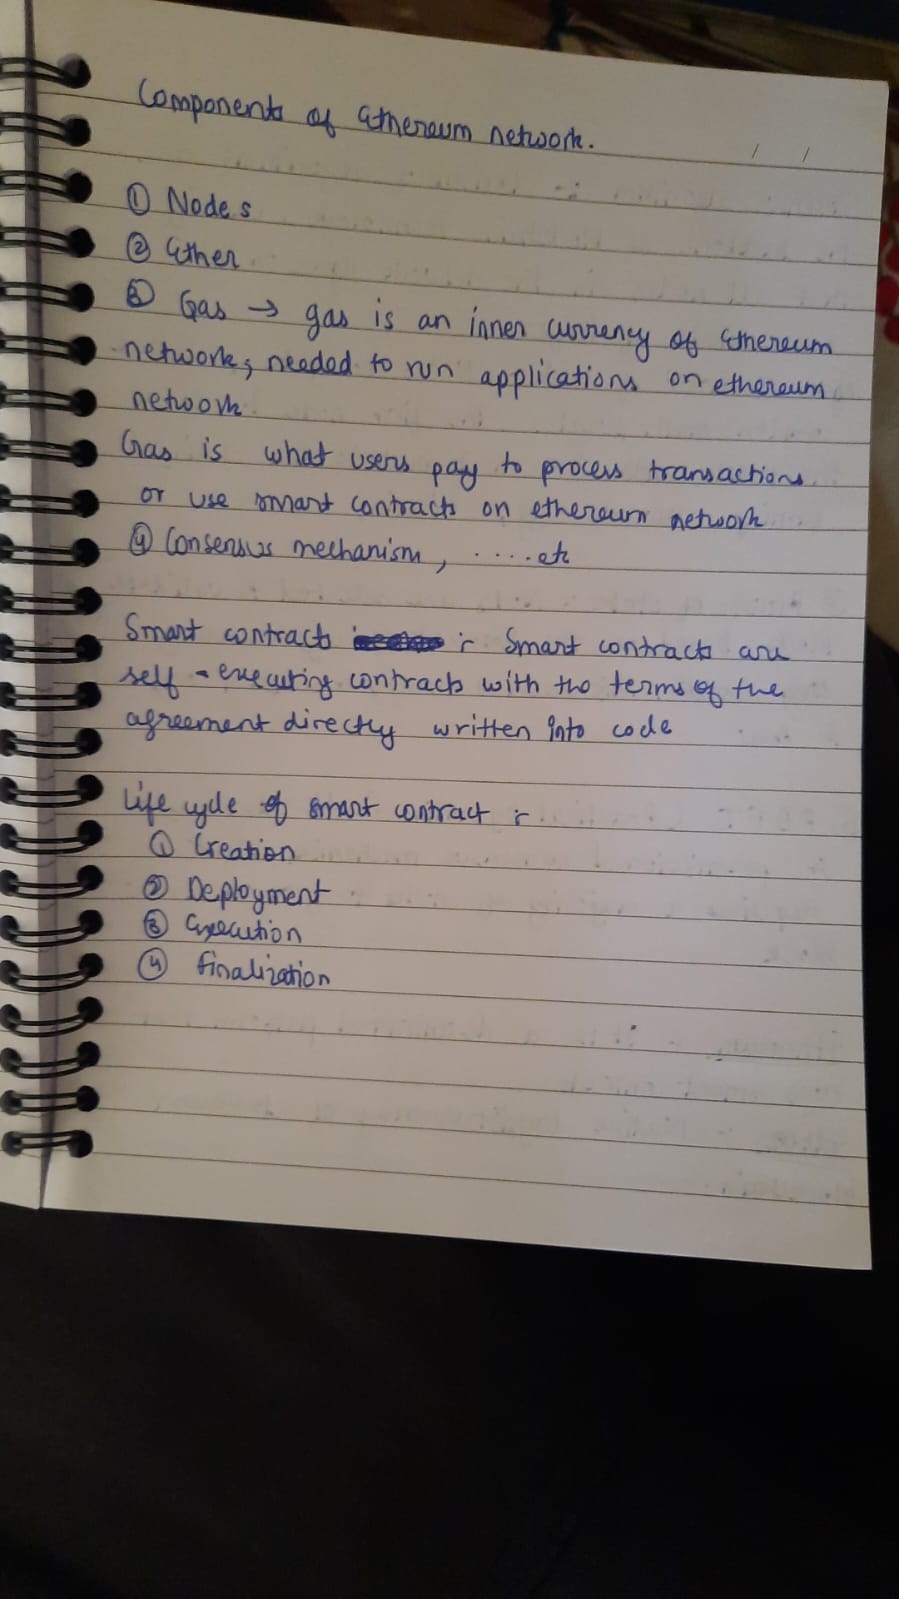 Components of Ethereum network.
/ /
① Nodes
② Ether
③ Gas → gas is an inner currency of Ethereum
network, needed to run applications on ethereum
network
Gas is what users pay to process transactions
or use smart contracts on ethereum network
④ Consensus mechanism, .....etc
Smart contracts :- Smart contracts are
self-executing contracts with the terms of the
agreement directly written into code
Life cycle of smart contract :-
① Creation
② Deployment
③ Execution
④ finalization